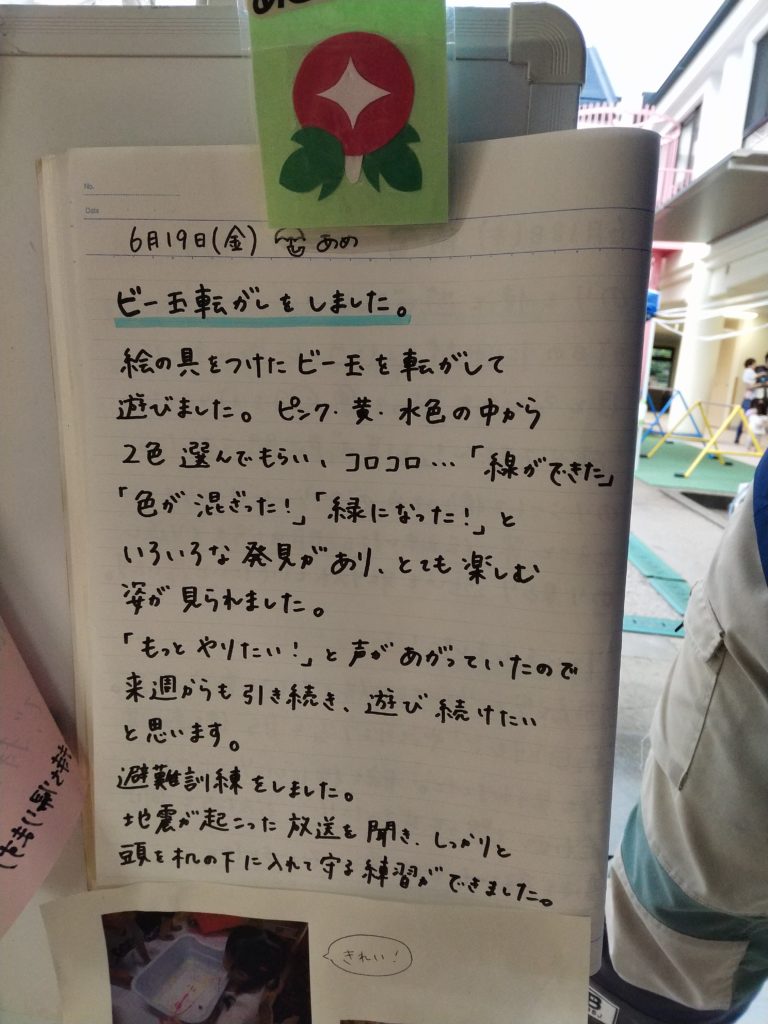 No.
Date
6月19日(金) あめ
ビー玉転がしをしました。
絵の具をつけたビー玉を転がして
遊びました。ピンク・黄・水色の中から
2色選んでもらい、コロコロ…「線ができた」
「色が混ざった!」「緑になった!」と
いろいろな発見があり、とても楽しむ
姿が見られました。
「もっとやりたい!」と声があがっていたので
来週からも引き続き、遊び続けたい
と思います。
避難訓練をしました。
地震が起こった放送を聞き、しっかりと
頭を机の下に入れて守る練習ができました。
きれい!